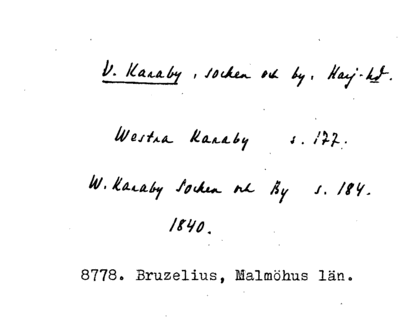 V. Karaby, socken och by, Harj. hd.
Westra Karaby s. 177.
W. Karaby Socken och By s. 184.
1840.
8778. Bruzelius, Malmöhus län.